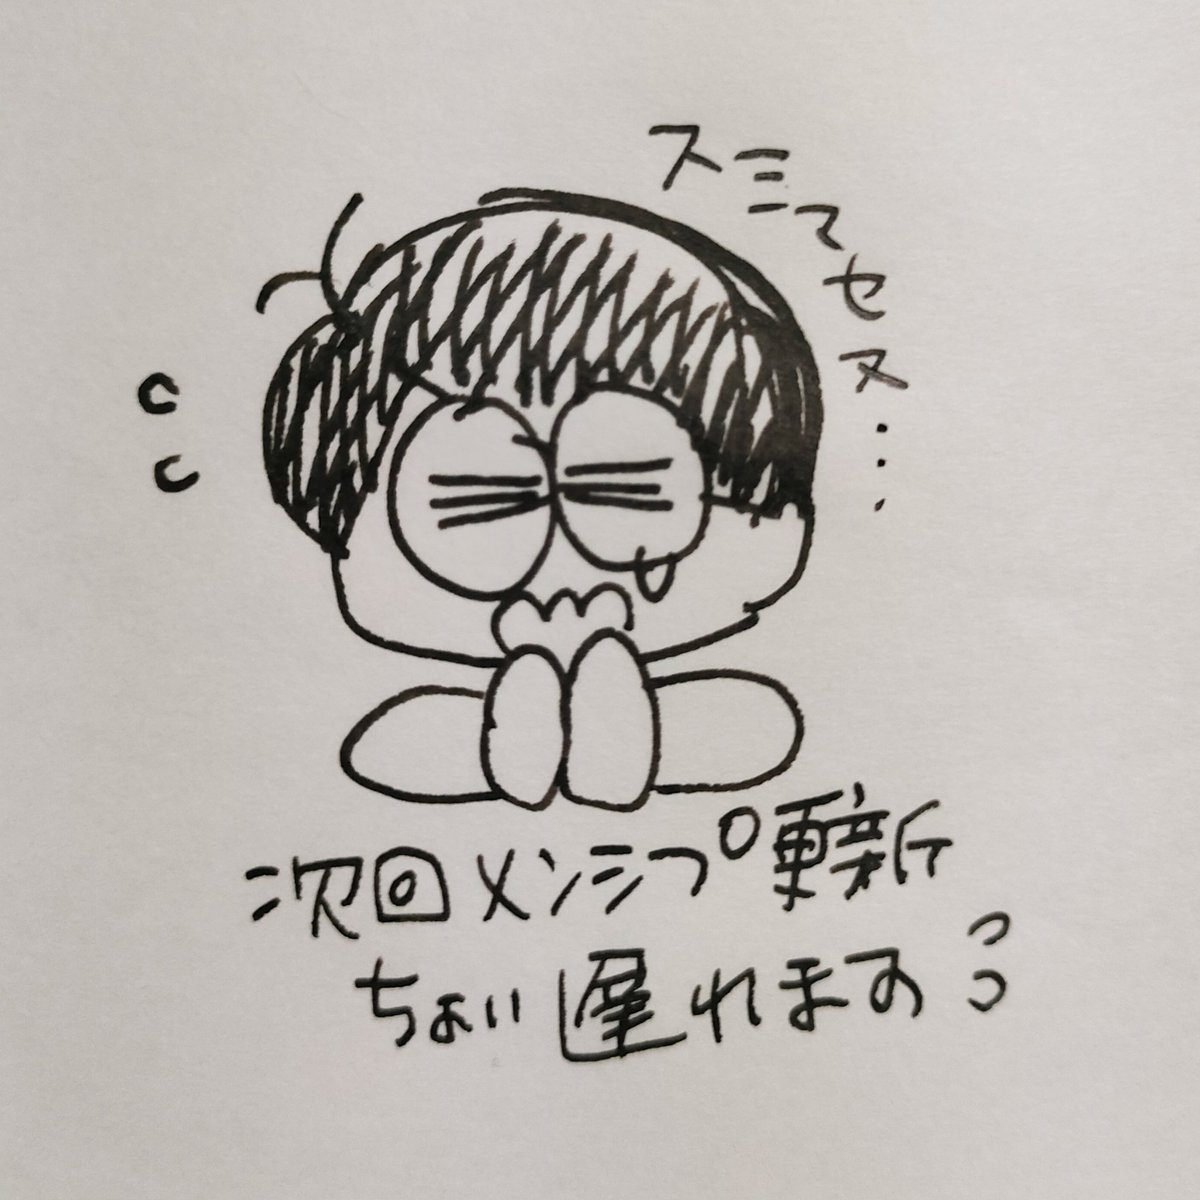 スミマセヌ...
次回メンシプ更新
ちょい遅れます